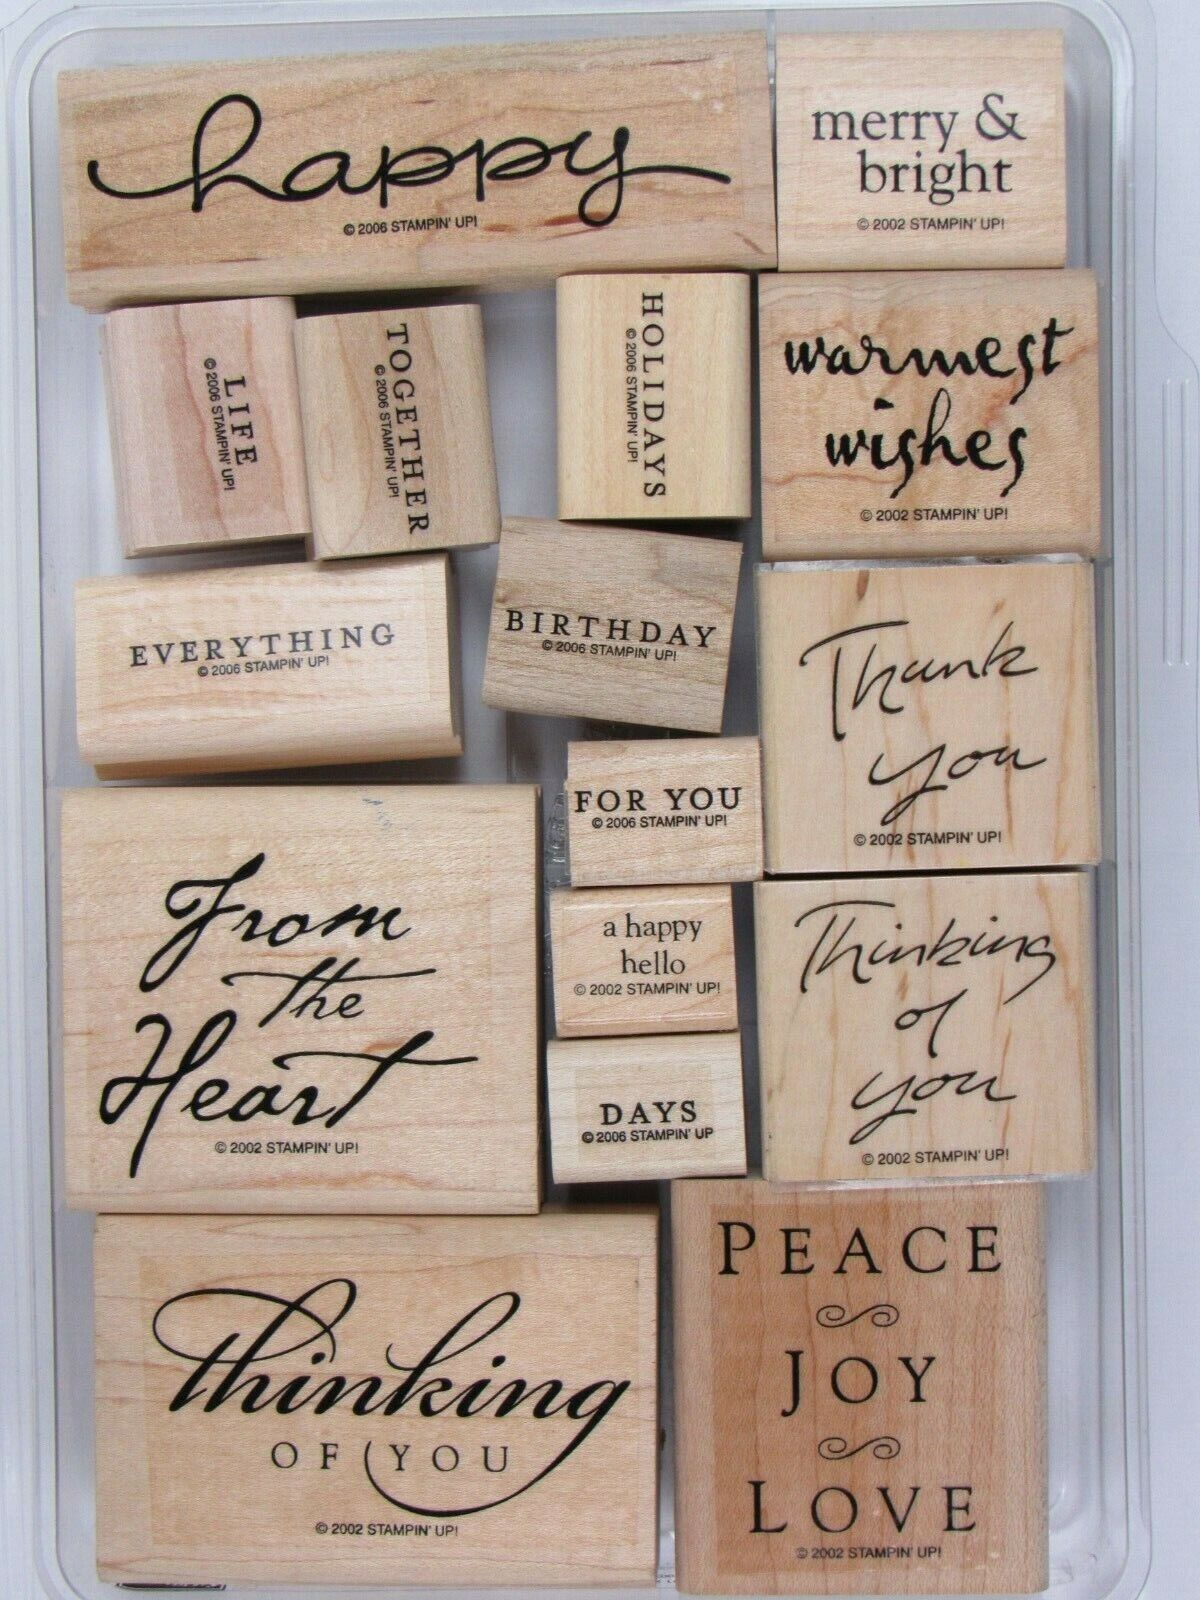 happy
© 2006 STAMPIN' UP!
merry &
bright
© 2002 STAMPIN' UP!
LIFE
© 2006 STAMPIN' UP!
TOGETHER
© 2006 STAMPIN' UP!
HOLIDAYS
© 2006 STAMPIN' UP!
warmest
wishes
© 2002 STAMPIN' UP!
EVERYTHING
© 2006 STAMPIN' UP!
BIRTHDAY
© 2006 STAMPIN' UP!
Thank
you
© 2002 STAMPIN' UP!
FOR YOU
© 2006 STAMPIN' UP!
From
the
Heart
© 2002 STAMPIN' UP!
a happy
hello
© 2002 STAMPIN' UP!
Thinking
of
you
© 2002 STAMPIN' UP!
DAYS
© 2006 STAMPIN' UP
thinking
OF YOU
© 2002 STAMPIN' UP!
PEACE
JOY
LOVE
© 2002 STAMPIN' UP!